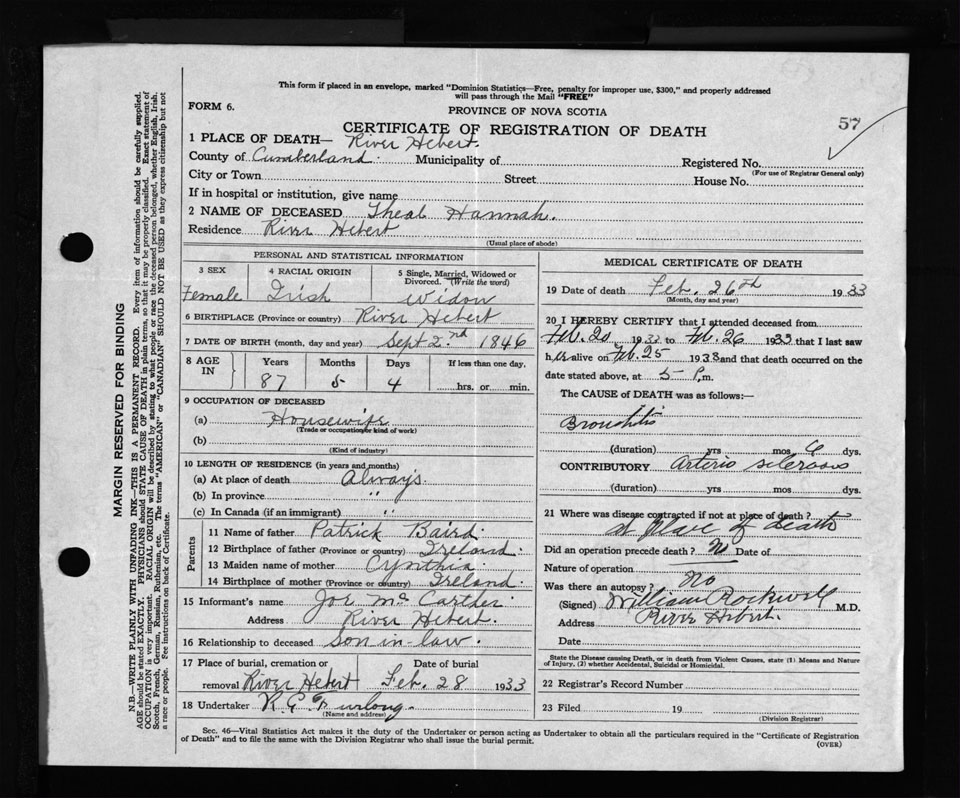 This form if placed in an envelope, marked "Dominion Statistics—Free, penalty for improper use, $300," and properly addressed
will pass through the Mail "FREE"
FORM 6.
PROVINCE OF NOVA SCOTIA
57
CERTIFICATE OF REGISTRATION OF DEATH
1 PLACE OF DEATH— River Hebert.
County of Cumberland. Municipality of Registered No.
(For use of Registrar General only)
City or Town Street House No.
If in hospital or institution, give name
2 NAME OF DECEASED Theal Hannah.
Residence River Hebert
(Usual place of abode)
PERSONAL AND STATISTICAL INFORMATION
3 SEX 4 RACIAL ORIGIN 5 Single, Married, Widowed or
Divorced. (Write the word)
Female Irish Widow
6 BIRTHPLACE (Province or country) River Hebert
7 DATE OF BIRTH (month, day and year) Sept 2nd 1846
8 AGE IN Years Months Days If less than one day,
87 5 4 hrs. or min.
9 OCCUPATION OF DECEASED
(a) Housewife
(Trade or occupation or kind of work)
(b)
(Kind of industry)
10 LENGTH OF RESIDENCE (in years and months)
(a) At place of death Always.
(b) In province "
(c) In Canada (if an immigrant) "
Parents
11 Name of father Patrick Baird.
12 Birthplace of father (Province or country) Ireland.
13 Maiden name of mother Cynthia
14 Birthplace of mother (Province or country) Ireland.
15 Informant's name Joe McCarther
Address River Hebert.
16 Relationship to deceased Son-in-law.
17 Place of burial, cremation or Date of burial
removal River Hebert Feb. 28 1933
18 Undertaker R. G. Furlong.
(Name and address)
MEDICAL CERTIFICATE OF DEATH
19 Date of death Feb. 26th 1933
(Month, day and year)
20 I HEREBY CERTIFY that I attended deceased from
Feb. 20 1933 to Feb. 26 1933 that I last saw
her alive on Feb. 25 1933 and that death occurred on the
date stated above, at 5 P.m.
The CAUSE of DEATH was as follows:—
Bronchitis
(duration) yrs mos 6 dys.
CONTRIBUTORY Arterio sclerosis
(duration) yrs. mos. dys.
21 Where was disease contracted if not at place of death?
at place of death
Did an operation precede death? No Date of
Nature of operation
Was there an autopsy? No
(Signed) William Rockwell M.D.
Address River Hebert.
Date
State the Disease causing Death, or in death from Violent Causes, state (1) Means and Nature
of Injury, (2) whether Accidental, Suicidal or Homicidal.
22 Registrar's Record Number
23 Filed 19
(Division Registrar)
Sec. 46—Vital Statistics Act makes it the duty of the Undertaker or person acting as Undertaker to obtain all the particulars required in the "Certificate of Registration
of Death" and to file the same with the Division Registrar who shall issue the burial permit.
(OVER)
MARGIN RESERVED FOR BINDING
N.B.—WRITE PLAINLY WITH UNFADING INK—THIS IS A PERMANENT RECORD. Every item of information should be carefully supplied.
AGE should be stated EXACTLY. PHYSICIANS should STATE CAUSE OF DEATH in plain terms, so that it may be properly classified. Exact statement of
OCCUPATION is very important. RACIAL ORIGIN will be described by stating to what people or race the deceased person belonged, whether English, Irish,
Scotch, French, German, Russian, Ruthenian, etc. The terms "AMERICAN" or "CANADIAN" SHOULD NOT BE USED as they express citizenship but not
a race or people. Fee instructions on back of Certificate.